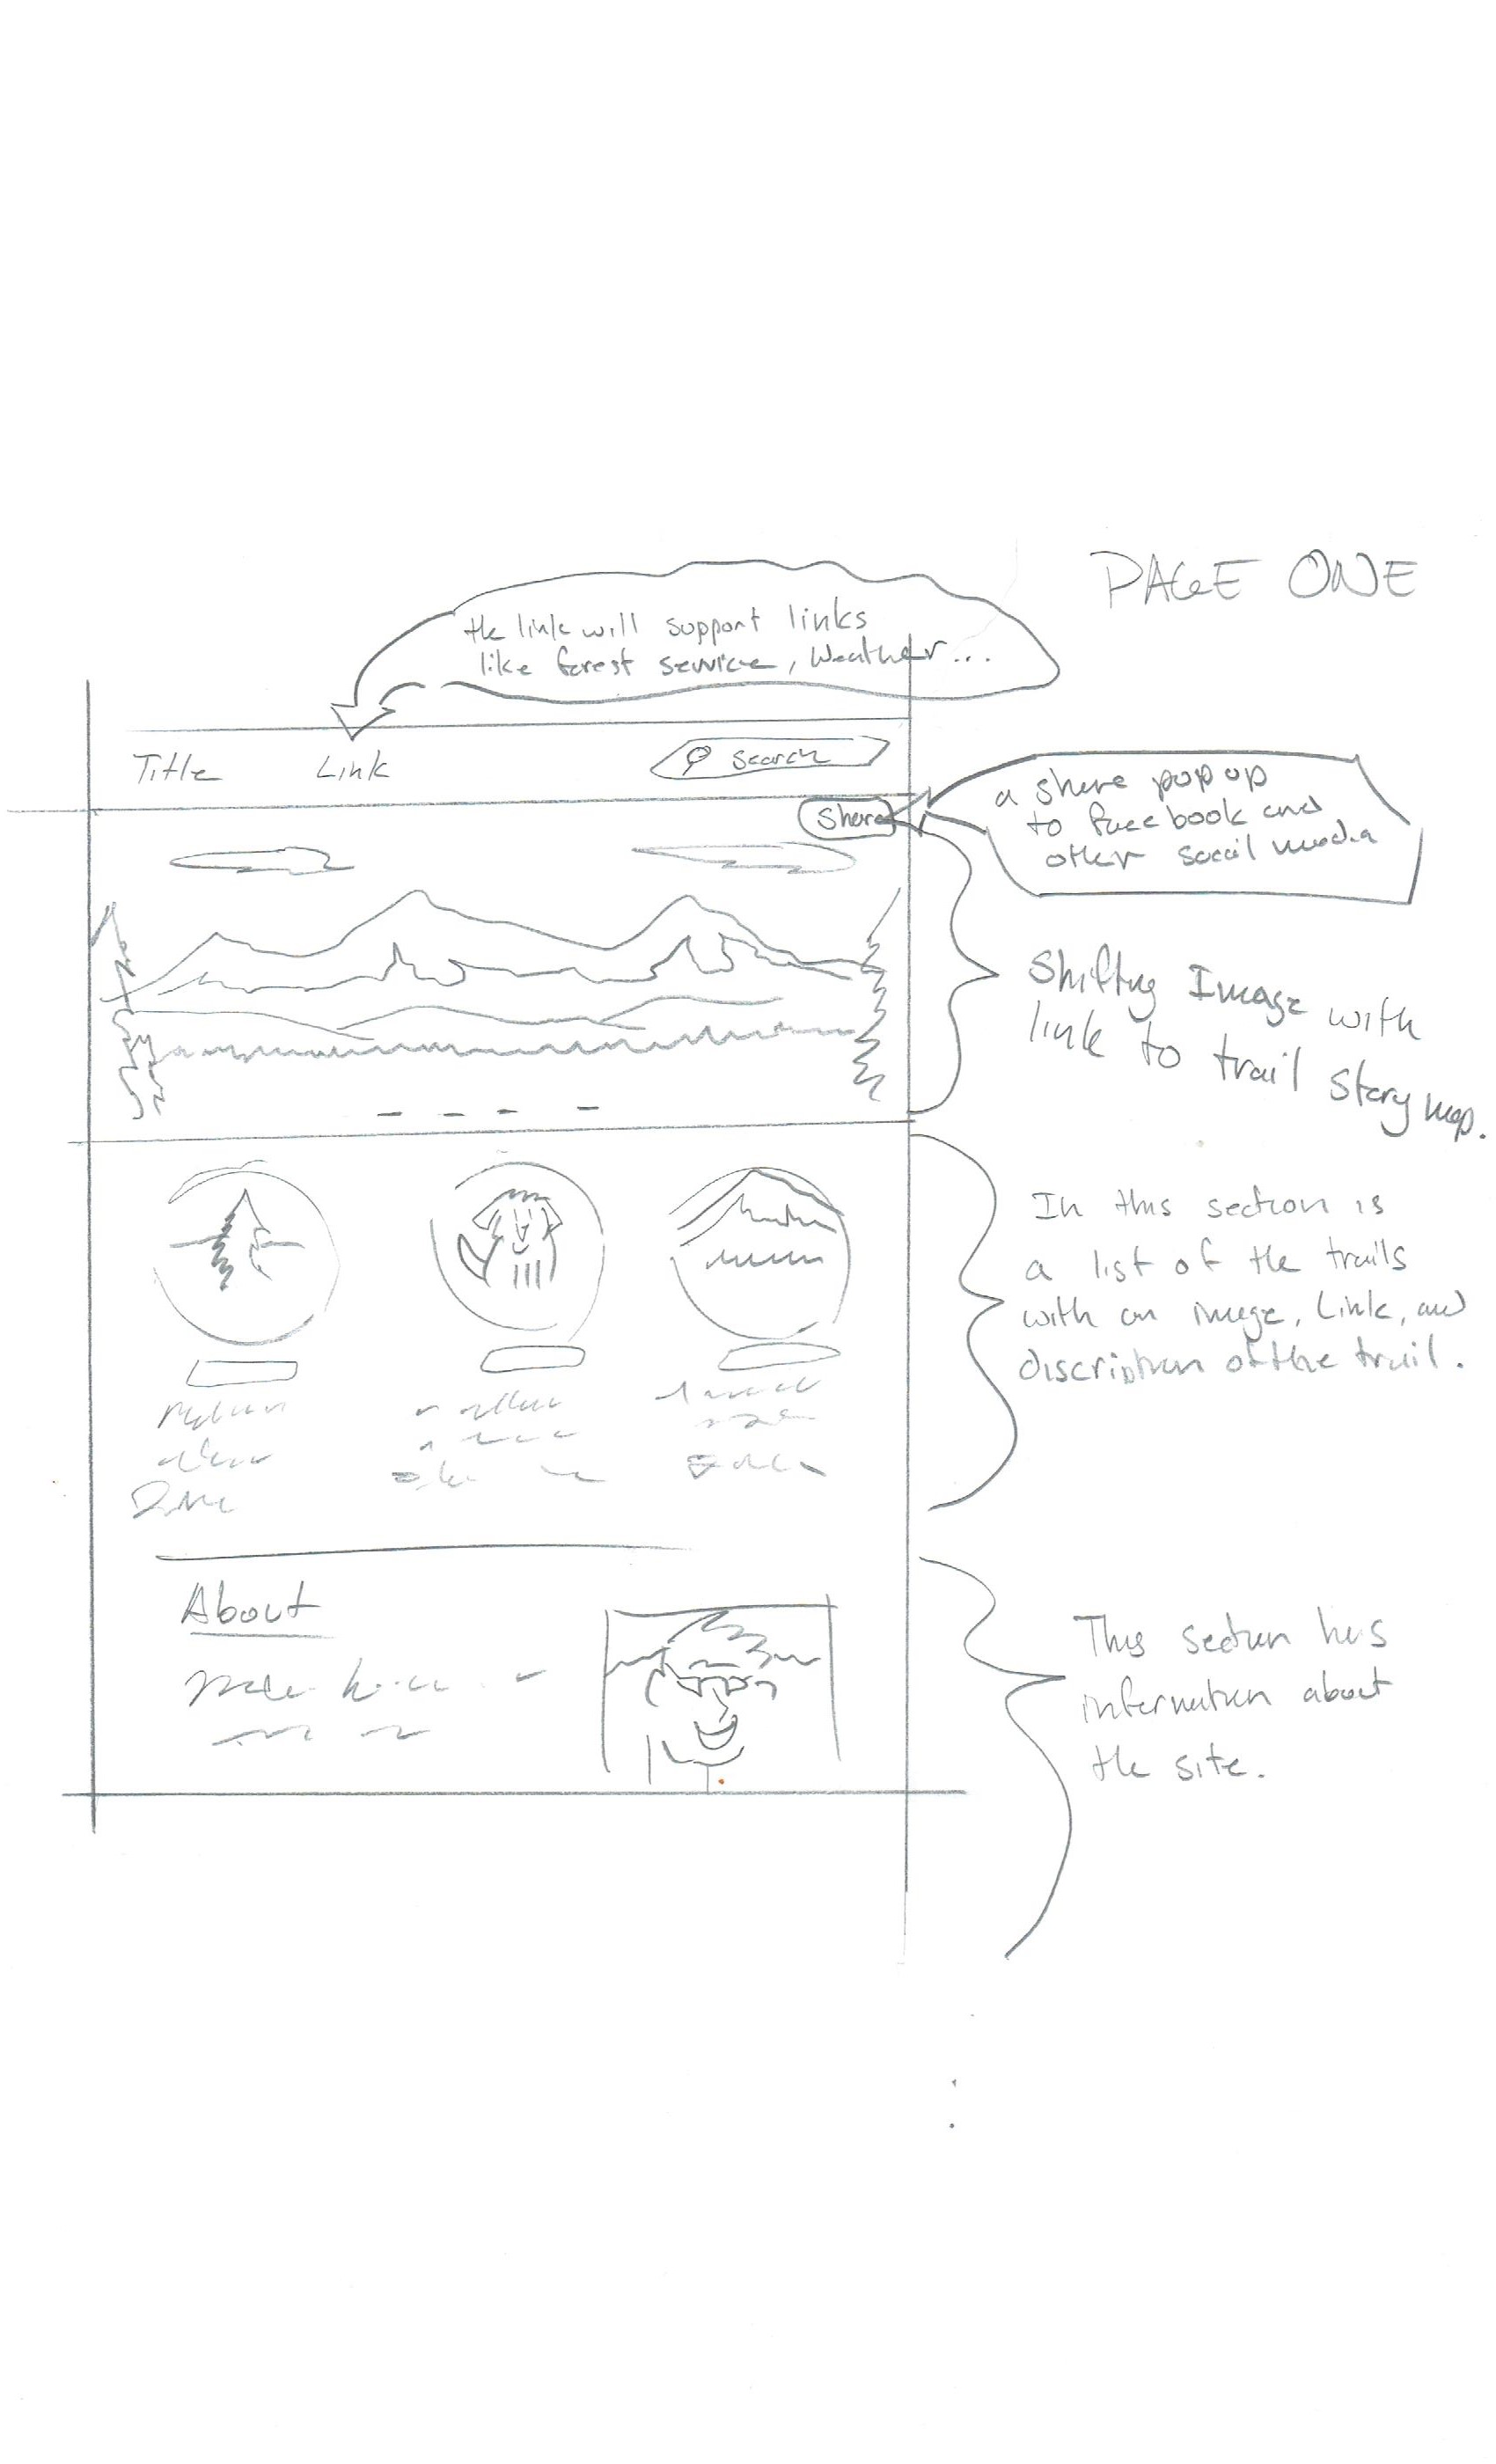 PAGE ONE
the link will support links
like forest service, Weather...
Title Link Search
Share
a share pop up
to facebook and
other socail media
Shifting Image with
link to trail story map.
In this section is
a list of the trails
with an image, Link, and
discription of the trail.
About
This section has
information about
the site.